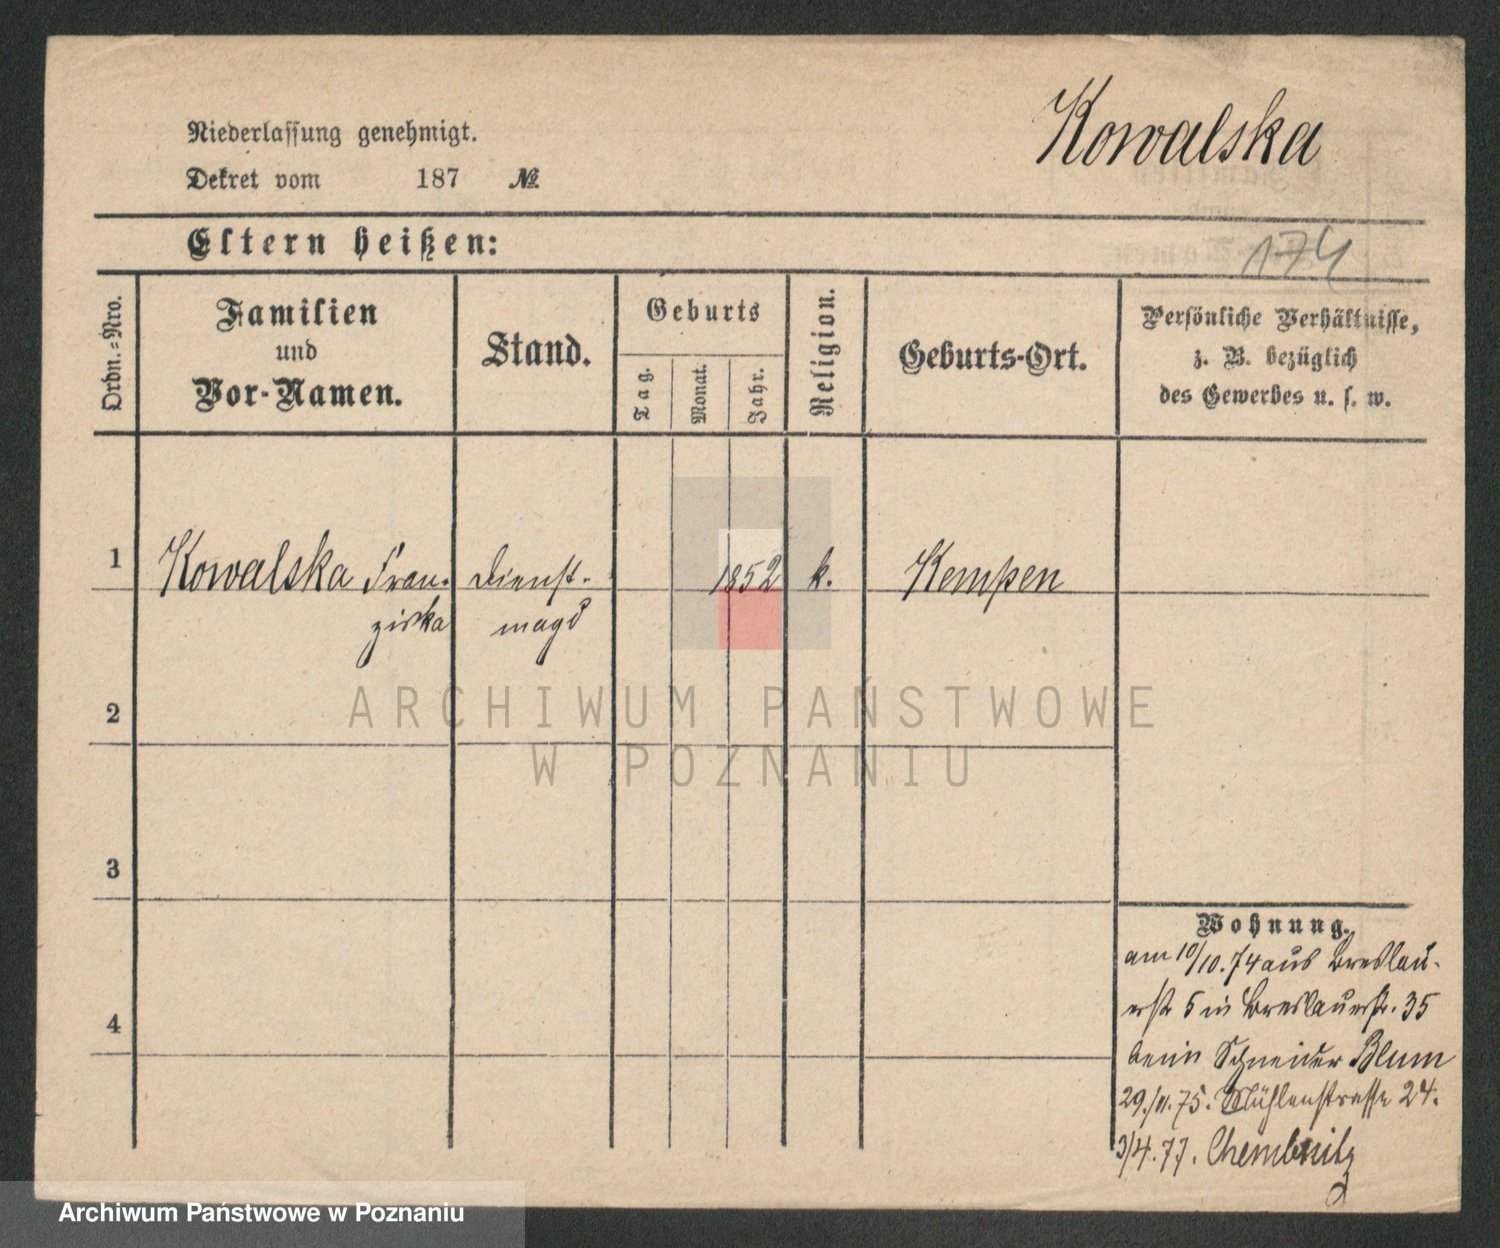 Kowalska
Niederlassung genehmigt.
Dekret vom 187 №
Eltern heißen:
174
Ordn.-Nro.
Familien
und
Vor-Namen.
Stand.
Geburts
Tag.
Monat.
Jahr.
Religion.
Geburts-Ort.
Persönliche Verhältnisse,
z. B. bezüglich
des Gewerbes u. s. w.
1 Kowalska Fran- Dienst- 1852 k. Kempen
ziska magd
ARCHIWUM PAŃSTWOWE
W POZNANIU
2
3
4
Wohnung.
am 10/10.74 aus Breslau-
erstr 5 in Breslauerstr. 35
beim Schneider Blum
29./11.75. Mühlenstrasse 24.
3/4.77. Chembnitz
Archiwum Państwowe w Poznaniu